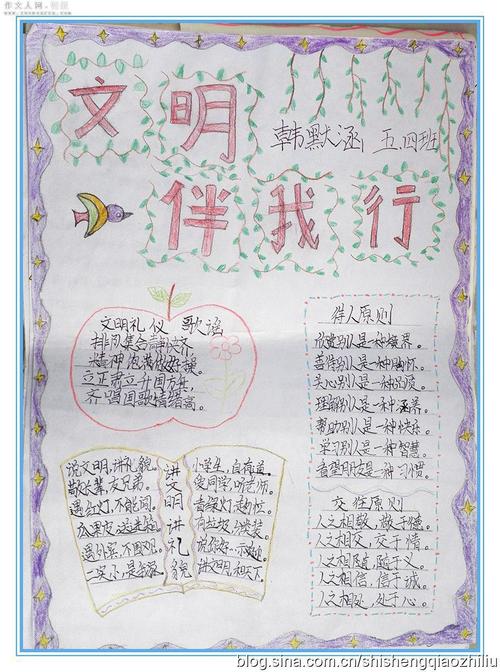 作文人网
文明
韩默涵 五.四班
伴我行
文明礼仪 歌谣
排队集合静快齐,
精神饱满做好操。
立正肃立升国旗,
齐唱国歌情绪高。
待人原则
欣赏别人是一种境界。
善待别人是一种胸怀。
关心别人是一种品质。
理解别人是一种涵养。
帮助别人是一种快乐。
学习别人是一种智慧。
是一种习惯。
说文明,讲礼貌。
敬长辈,友兄弟。
遇红灯,不能闯。
瓜果皮
遇外宾,不
讲文明讲礼貌
小学生,自
爱同学,听老师。
有垃圾
讲文明,和天下。
交往原则
人之相敬,敬于德。
人之相交,交于情。
人之相随,随于义。
人之相信,信于诚。
人之相处,处于心。
blog.sina.com.cn/shishengqiaozhiliu